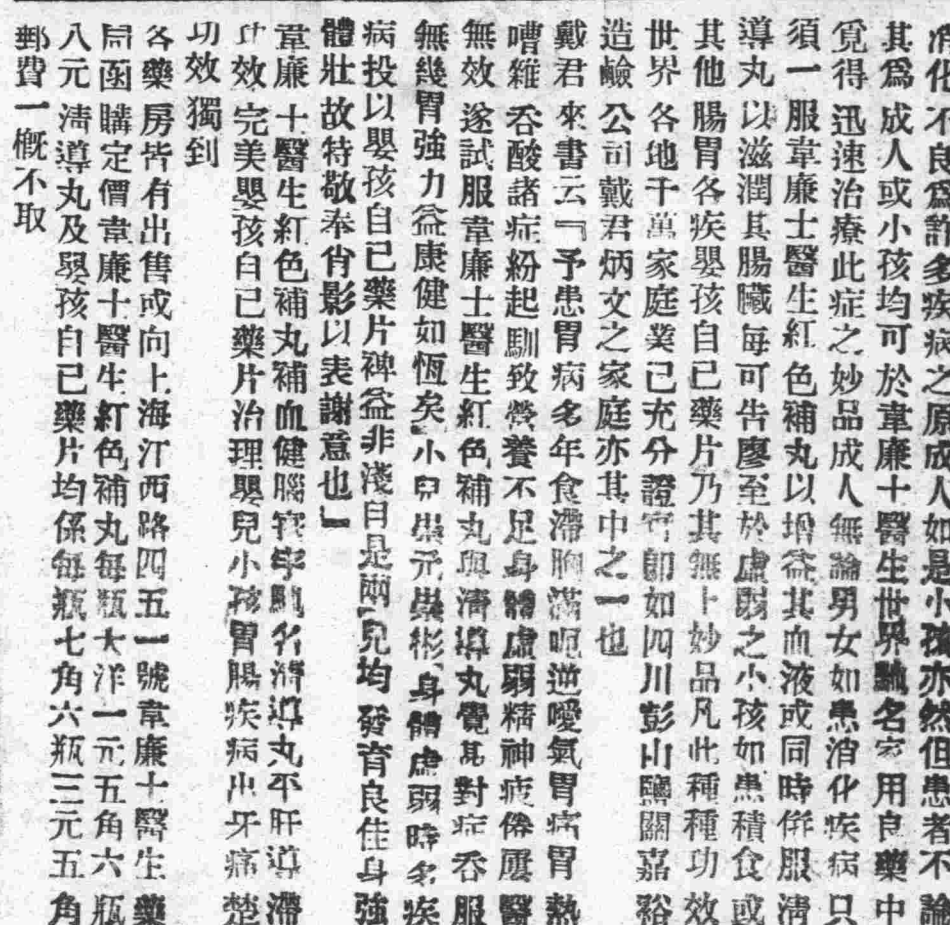 消化不良爲許多疾病之原成人如是小孩亦然但患者不論
其爲成人或小孩均可於韋廉士醫生世界馳名家用良藥中
覓得迅速治療此症之妙品成人無論男女如患消化疾病只
須一服韋廉士醫生紅色補丸以增益其血液或同時併服淸
導丸以滋潤其腸臟每可告廖至於虛弱之小孩如患積食或
其他腸胃各疾嬰孩自己藥片乃其無上妙品凡此種種功效
世界各地千萬家庭業已充分證實卽如四川彭山鹽關嘉裕
造鹼公司戴君炳文之家庭亦其中之一也
戴君來書云『予患胃病多年食滯胸滿呃逆噯氣胃痛胃熱
嘈雜呑酸諸症紛起馴致營養不足身體虛弱精神疲倦屢醫
無效遂試服韋廉士醫生紅色補丸與淸導丸覺甚對症呑服
無幾胃強力益康健如恆矣小兒崇元崇彬身體虛弱時多疾
病投以嬰孩自己藥片裨益非淺自是兩兒均發育良佳身強
體壯故特敬奉肖影以表謝意也』
韋廉士醫生紅色補丸補血健腦馳名淸導丸平肝導滯
功效完美嬰孩自己藥片治理嬰兒小孩胃腸疾病出牙痛楚
功效獨到
各藥房皆有出售或向上海江西路四五一號韋廉士醫生藥
局函購定價韋廉士醫生紅色補丸每瓶大洋一元五角六瓶
八元淸導丸及嬰孩自己藥片均係每瓶七角六瓶三元五角
郵費一槪不取